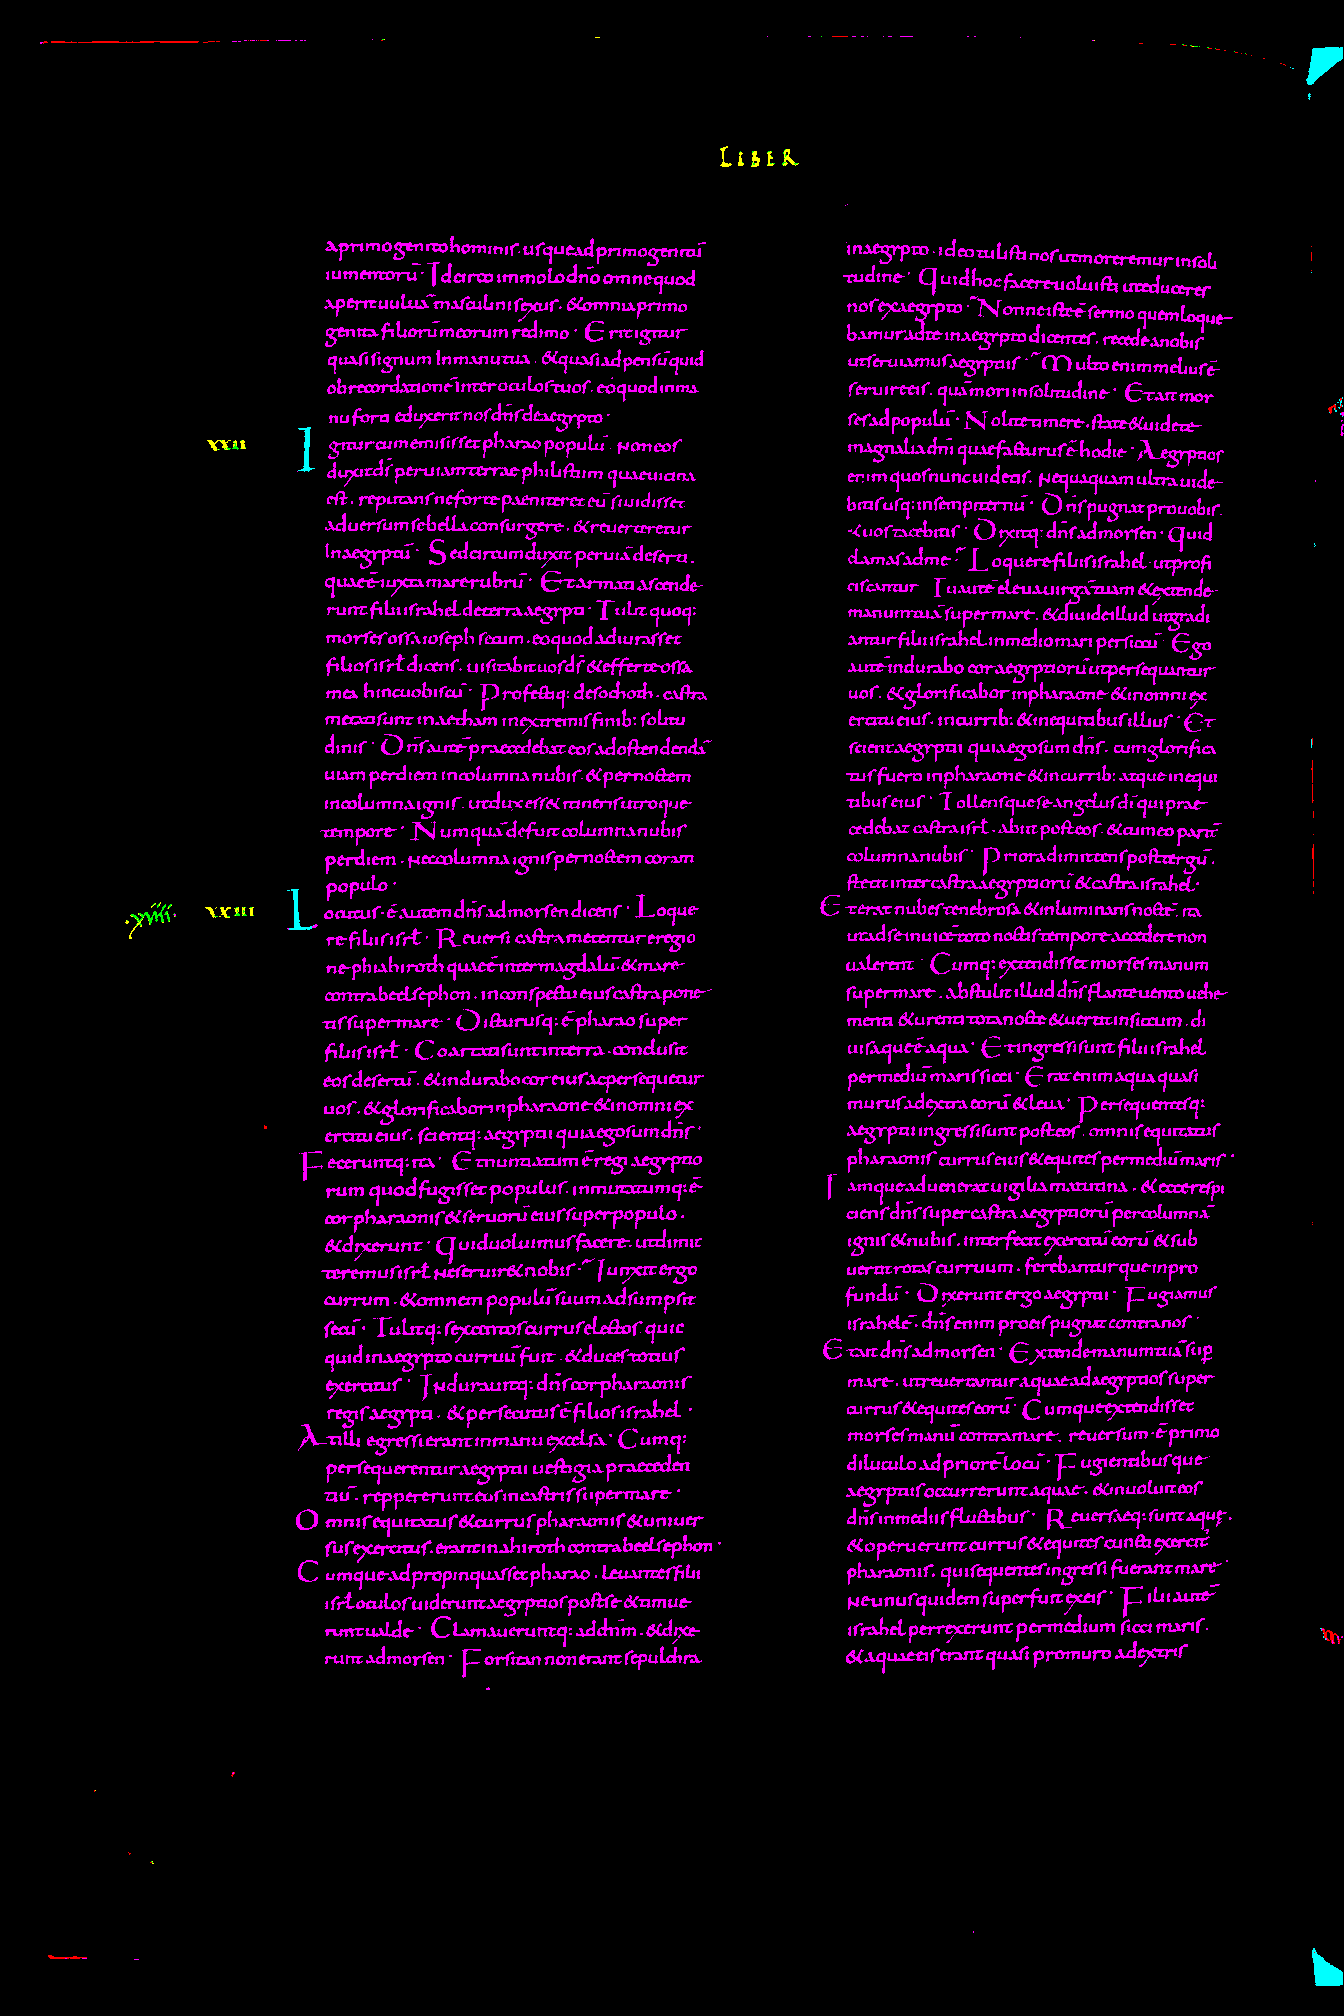 LIBER
a primogenito hominis. usque ad primogenitū
iumentorū· Idcirco immolo dño omne quod
aperit uuluā masculini sexus. & omnia primo
genita filiorū meorum redimo· Erit igitur
quasi signum in manu tua. & quasi adpensū quid
ob recordationē inter oculos tuos. eo quod in ma
nu forti eduxerit nos dñs de aegypto·
XXII
Igitur cum emisisset pharao populū. Non eos
duxit dś per uiam terrae philistiim quae uicina
est. reputans ne forte paeniteret eū si uidisset
aduersum se bella consurgere. & reuerteretur
In aegyptū· Sed circumduxit per uiā deserti.
quae ē iuxta mare rubrū· Et armati ascende
runt filii israhel de terra aegypti· Tulit quoq:
morses ossa ioseph secum. eo quod adiurasset
filios isrł dicens. uisitabit uos dś & efferte ossa
mea hinc uobiscū· Profectiq: de sochoth. castra
metati sunt in aetham in extremis finib: solitu
dinis· Dñs autē praecedebat eos ad ostendendā
uiam per diem in columna nubis. & per noctem
in columna ignis. ut dux ess& itineris utroque
tempore· Numquā defuit columna nubis
per diem. Nec columna ignis per noctem coram
populo·
XXIII
Locutus. ē autem dñs ad morsen dicens· Loque
re filiis isrł· Reuersi castrametentur e regio
ne phiahiroth quae ē inter magdalū. & mare
contra beelsephon. in conspectu eius castra pone
tis super mare· Dicturusq: ē pharao super
filiis isrł· Coartati sunt in terra. conclusit
eos desertū. & indurabo cor eius ac persequetur
uos. & glorificabor in pharaone & in omni ex
ercitu eius. scientq: aegyptii quia ego sum dñs·
Feceruntq: ita· Et nuntiatum ē regi aegyptio
rum quod fugisset populus. inmutatumq: ē
cor pharaonis & seruorū eius super populo.
& dixerunt· Quid uoluimus facere. ut dimit
teremus isrł Ne seruir& nobis· Iunxit ergo
currum. & omnem populū suum adsumpsit
secū· Tulitq: sexcentos currus electos. quic
quid in aegypto curruū fuit. & duces totius
exercitus· Indurauitq: dñs cor pharaonis
regis aegypti. & persecutus ē filios israhel·
At illi egressi erant in manu excelsa· Cumq:
persequerentur aegyptii uestigia praeceden
tiū. reppererunt eos in castris super mare·
Omnis equitatus & currus pharaonis & uniuer
sus exercitus. erant in ahiroth contra beelsephon·
Cumque adpropinquasset pharao. leuantes filii
isrł oculos uiderunt aegyptios post se & timue
runt ualde· Clamaueruntq: ad dñm. & dixe
runt ad morsen· Forsitan non erant sepulchra
in aegypto. ideo tulisti nos ut moreremur in soli
tudine· Quid hoc facere uoluisti ut educeres
nos ex aegypto· Nonne iste ē sermo quem loque
bamur ad te in aegypto dicentes. recede a nobis
ut seruiamus aegyptiis· Multo enim melius ē
seruire eis. quā mori in solitudine· Et ait mor
ses ad populū· Nolite timere. state & uidete
magnalia dñi quae facturus ē hodie· Aegyptios
enim quos nunc uidetis. Nequaquam ultra uide
bitis usq: in sempiternū· Dñs pugnat pro uobis.
& uos tacebitis· Dixitq: dñs ad morsen· Quid
clamas ad me· Loquere filiis israhel. ut profi
ciscantur Tu autē eleua uirgā tuam & extende
manum tuā super mare. & diuide illud ut gradi
antur filii israhel in medio mari per siccū· Ego
autē indurabo cor aegyptiorū ut persequantur
uos. & glorificabor in pharaone & in omni ex
ercitu eius. in currib: & in equitibus illius· Et
scient aegyptii quia ego sum dñs. cum glorifica
tus fuero in pharaone & in currib: atque in equi
tibus eius· Tollensque se angelus dī qui prae
cedebat castra isrł. abiit post eos. & cum eo paritē
columna nubis· Priora dimittens post tergū.
stetit inter castra aegyptiorū & castra israhel·
Et erat nubes tenebrosa & inluminans noctē. ita
ut ad se inuicē toto noctis tempore accedere non
ualerent· Cumq: extendisset morses manum
super mare. abstulit illud dñs flante uento uehe
menti & urenti tota nocte & uertit in siccum. di
uisaque ē aqua· Et ingressi sunt filii israhel
per mediū maris sicci· Erat enim aqua quasi
murus a dextra eorū & leua· Persequentesq:
aegyptii ingressi sunt post eos. omnis equitatus
pharaonis currus eius & equites per mediū maris·
Iamque aduenerat uigilia matutina. & ecce respi
ciens dñs super castra aegyptiorū per columnā
ignis & nubis. interfecit exercitū eorū & sub
uertit rotas curruum. ferebanturque in pro
fundū· Dixerunt ergo aegyptii· Fugiamus
israhelē. dñs enim pro eis pugnat contra nos·
Et ait dñs ad morsen· Extende manum tuā sup
mare. ut reuertantur aquae ad aegyptios super
currus & equites eorū· Cumque extendisset
morses manū contra mare. reuersum. ē primo
diluculo ad priorē locū· Fugientibusque
aegyptiis occurrerunt aquae. & inuoluit eos
dñs in mediis fluctibus· Reuersaeq: sunt aquę.
& operuerunt currus & equites cuncti exercitꝰ
pharaonis. qui sequentes ingressi fuerant mare·
Ne unus quidem superfuit ex eis· Filii autē
israhel perrexerunt per medium sicci maris.
& aquae eis erant quasi pro muro a dextris